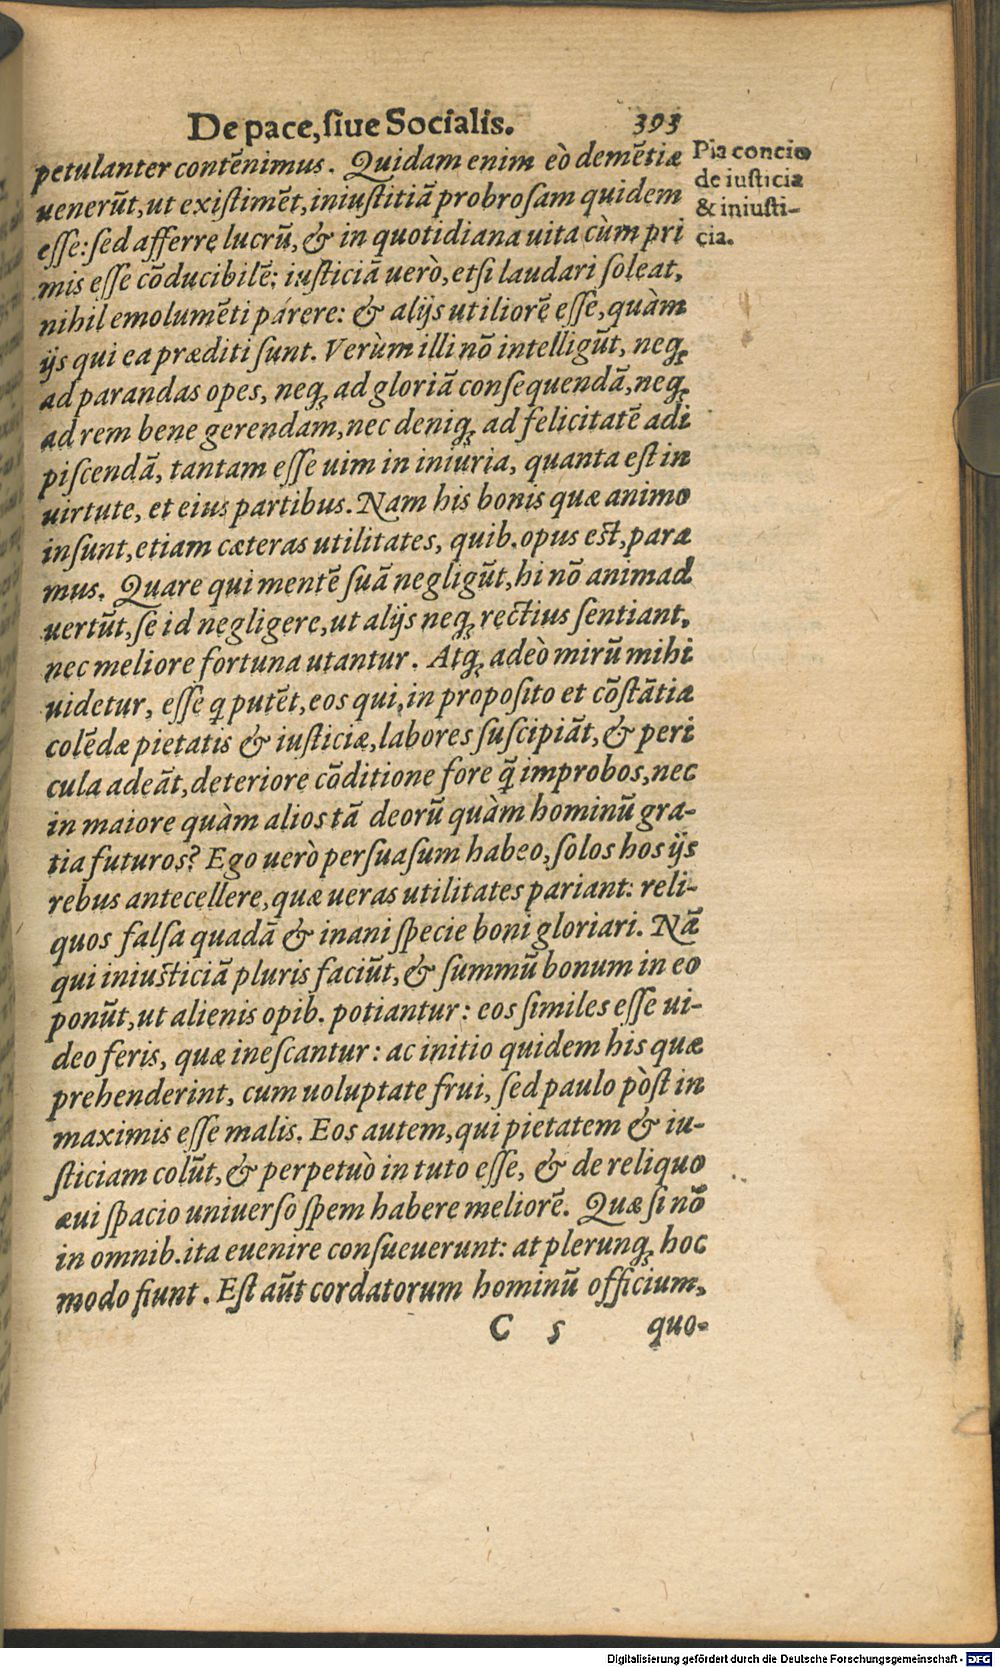 De pace, ſiue Socialis. 393
petulanter contēnimus. Quidam enim eò demētiæ
uenerūt, ut exiſtimēt, iniuſtitiā probroſam quidem
eſſe: ſed afferre lucrū, & in quotidiana uita cùm pri
mis eſſe cōducibilē: iuſticiā uerò, etſi laudari ſoleat,
nihil emolumēti párere: & alijs utiliorē eſſe, quàm
ijs qui ea præditi ſunt. Verùm illi nō intelligūt, neq;
ad parandas opes, neq; ad gloriā conſequendā, neq;
ad rem bene gerendam, nec deniq; ad felicitatē adi
piſcendā, tantam eſſe uim in iniuria, quanta eſt in
uirtute, et eius partibus. Nam his bonis quæ animo
inſunt, etiam cæteras utilitates, quib. opus eſt, para
mus. Quare qui mentē ſuā negligūt, hi nō animad
uertūt, ſe id negligere, ut alijs neq; rectius ſentiant,
nec meliore fortuna utantur. Atq; adeò mirū mihi
uidetur, eſſe q putēt, eos qui, in propoſito et cōſtātia
colēdæ pietatis & iuſticiæ, labores ſuſcipiāt, & peri
cula adeāt, deteriore cōditione fore q̄ improbos, nec
in maiore quàm alios tā deorū quàm hominū gra-
tia futuros? Ego uerò perſuaſum habeo, ſolos hos ijs
rebus antecellere, quæ ueras utilitates pariant: reli-
quos falſa quadā & inani ſpecie boni gloriari. Nā
qui iniuſticiā pluris faciūt, & ſummū bonum in eo
ponūt, ut alienis opib. potiantur: eos ſimiles eſſe ui-
deo feris, quæ ineſcantur: ac initio quidem his quæ
prehenderint, cum uoluptate frui, ſed paulo pòſt in
maximis eſſe malis. Eos autem, qui pietatem & iu-
ſticiam colūt, & perpetuò in tuto eſſe, & de reliquo
æui ſpacio uniuerſo ſpem habere meliorē. Quæ ſi nō
in omnib. ita euenire conſueuerunt: at plerunq; hoc
modo fiunt. Eſt aūt cordatorum hominū officium,
C 5 quo-
Pia concio
de iuſticia
& iniuſti-
cia.
Digitalisierung gefördert durch die Deutsche Forschungsgemeinschaft - DFG